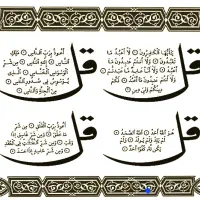 قل
يَٰٓأَيُّهَا ٱلْكَٰفِرُونَ ۝ لَآ أَعْبُدُ مَا
تَعْبُدُونَ ۝ وَلَآ أَنتُمْ عَٰبِدُونَ مَآ
أَعْبُدُ ۝ وَلَآ أَنَا۠ عَابِدٌ مَّا عَبَدتُّمْ ۝
وَلَآ أَنتُمْ عَٰبِدُونَ مَآ أَعْبُدُ ۝ لَكُمْ
دِينُكُمْ وَلِىَ دِينِ ۝
قل
أَعُوذُ بِرَبِّ ٱلنَّاسِ ۝ مَلِكِ
ٱلنَّاسِ ۝ إِلَٰهِ ٱلنَّاسِ ۝ مِن شَرِّ
ٱلْوَسْوَاسِ ٱلْخَنَّاسِ ۝ ٱلَّذِى
يُوَسْوِسُ فِى صُدُورِ ٱلنَّاسِ ۝
مِنَ ٱلْجِنَّةِ وَٱلنَّاسِ ۝
قل
هُوَ ٱللَّهُ أَحَدٌ ۝ ٱللَّهُ ٱلصَّمَدُ ۝
لَمْ يَلِدْ وَلَمْ يُولَدْ ۝ وَلَمْ
يَكُن لَّهُۥ كُفُوًا أَحَدٌۢ ۝
قل
أَعُوذُ بِرَبِّ ٱلْفَلَقِ ۝ مِن شَرِّ
مَا خَلَقَ ۝ وَمِن شَرِّ غَاسِقٍ إِذَا
وَقَبَ ۝ وَمِن شَرِّ ٱلنَّفَّٰثَٰتِ فِى ٱلْعُقَدِ
۝ وَمِن شَرِّ حَاسِدٍ إِذَا حَسَدَ ۝